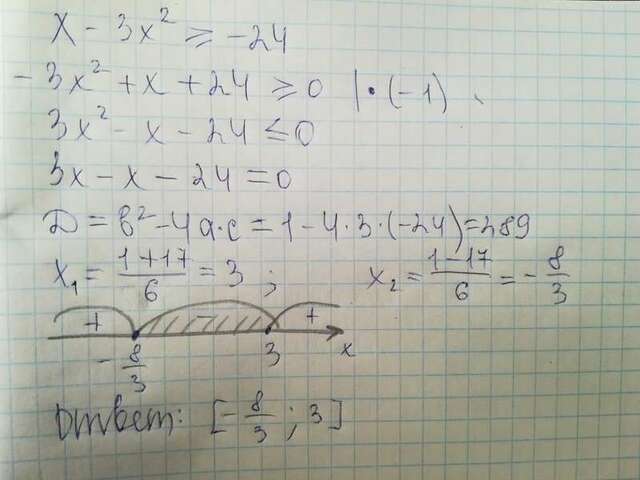 x - 3x² ≥ -24
-3x² + x + 24 ≥ 0 | · (-1)
3x² - x - 24 ≤ 0
3x - x - 24 = 0
D = b² - 4a·c = 1 - 4·3·(-24) = 289
x₁ = (1+17)/6 = 3 ; x₂ = (1-17)/6 = -8/3
+ - +
-8/3 3 x
Ответ: [-8/3 ; 3]